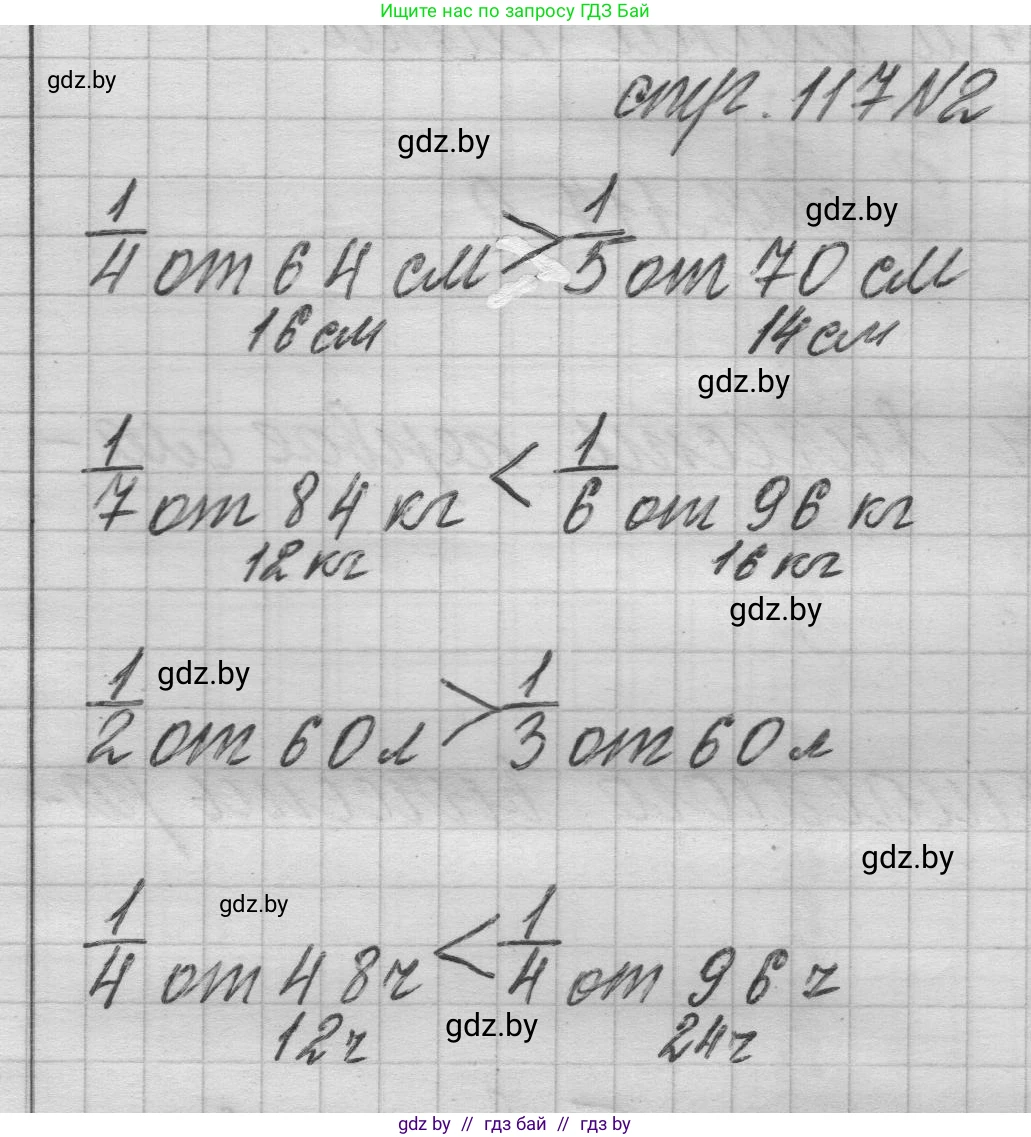 Ищите нас по запросу ГДЗ Бай
gdz.by
стр. 117 №2
gdz.by
1/4 от 64 см > 1/5 от 70 см
gdz.by
16 см 14 см
gdz.by
1/7 от 84 кг < 1/6 от 96 кг
12 кг 16 кг
gdz.by
gdz.by
1/2 от 60 л > 1/3 от 60 л
gdz.by
gdz.by
1/4 от 48 ч < 1/4 от 96 ч
12 ч 24 ч
gdz.by
gdz by // гдз бай // gdz by